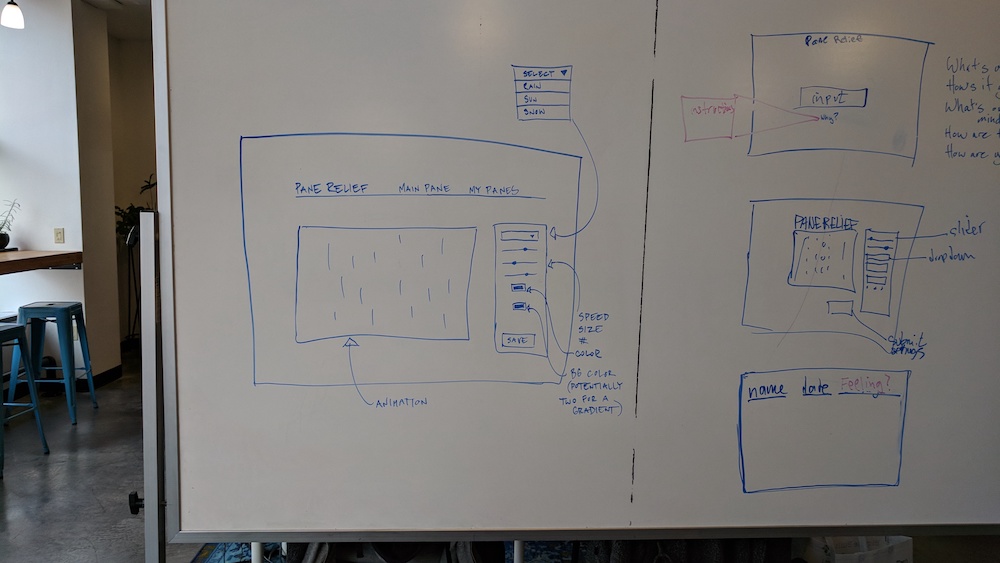 SELECT ▼
RAIN
SUN
SNOW
PANE RELIEF MAIN PANE MY PANES
SAVE
SPEED
SIZE
#
COLOR
BG COLOR
(POTENTIALLY
TWO FOR A
GRADIENT)
ANIMATION
Pane Relief
input
why?
What's
How's it
What's
mind
How are
How are
PANE RELIEF
slider
dropdown
submit
settings
name date Feeling?